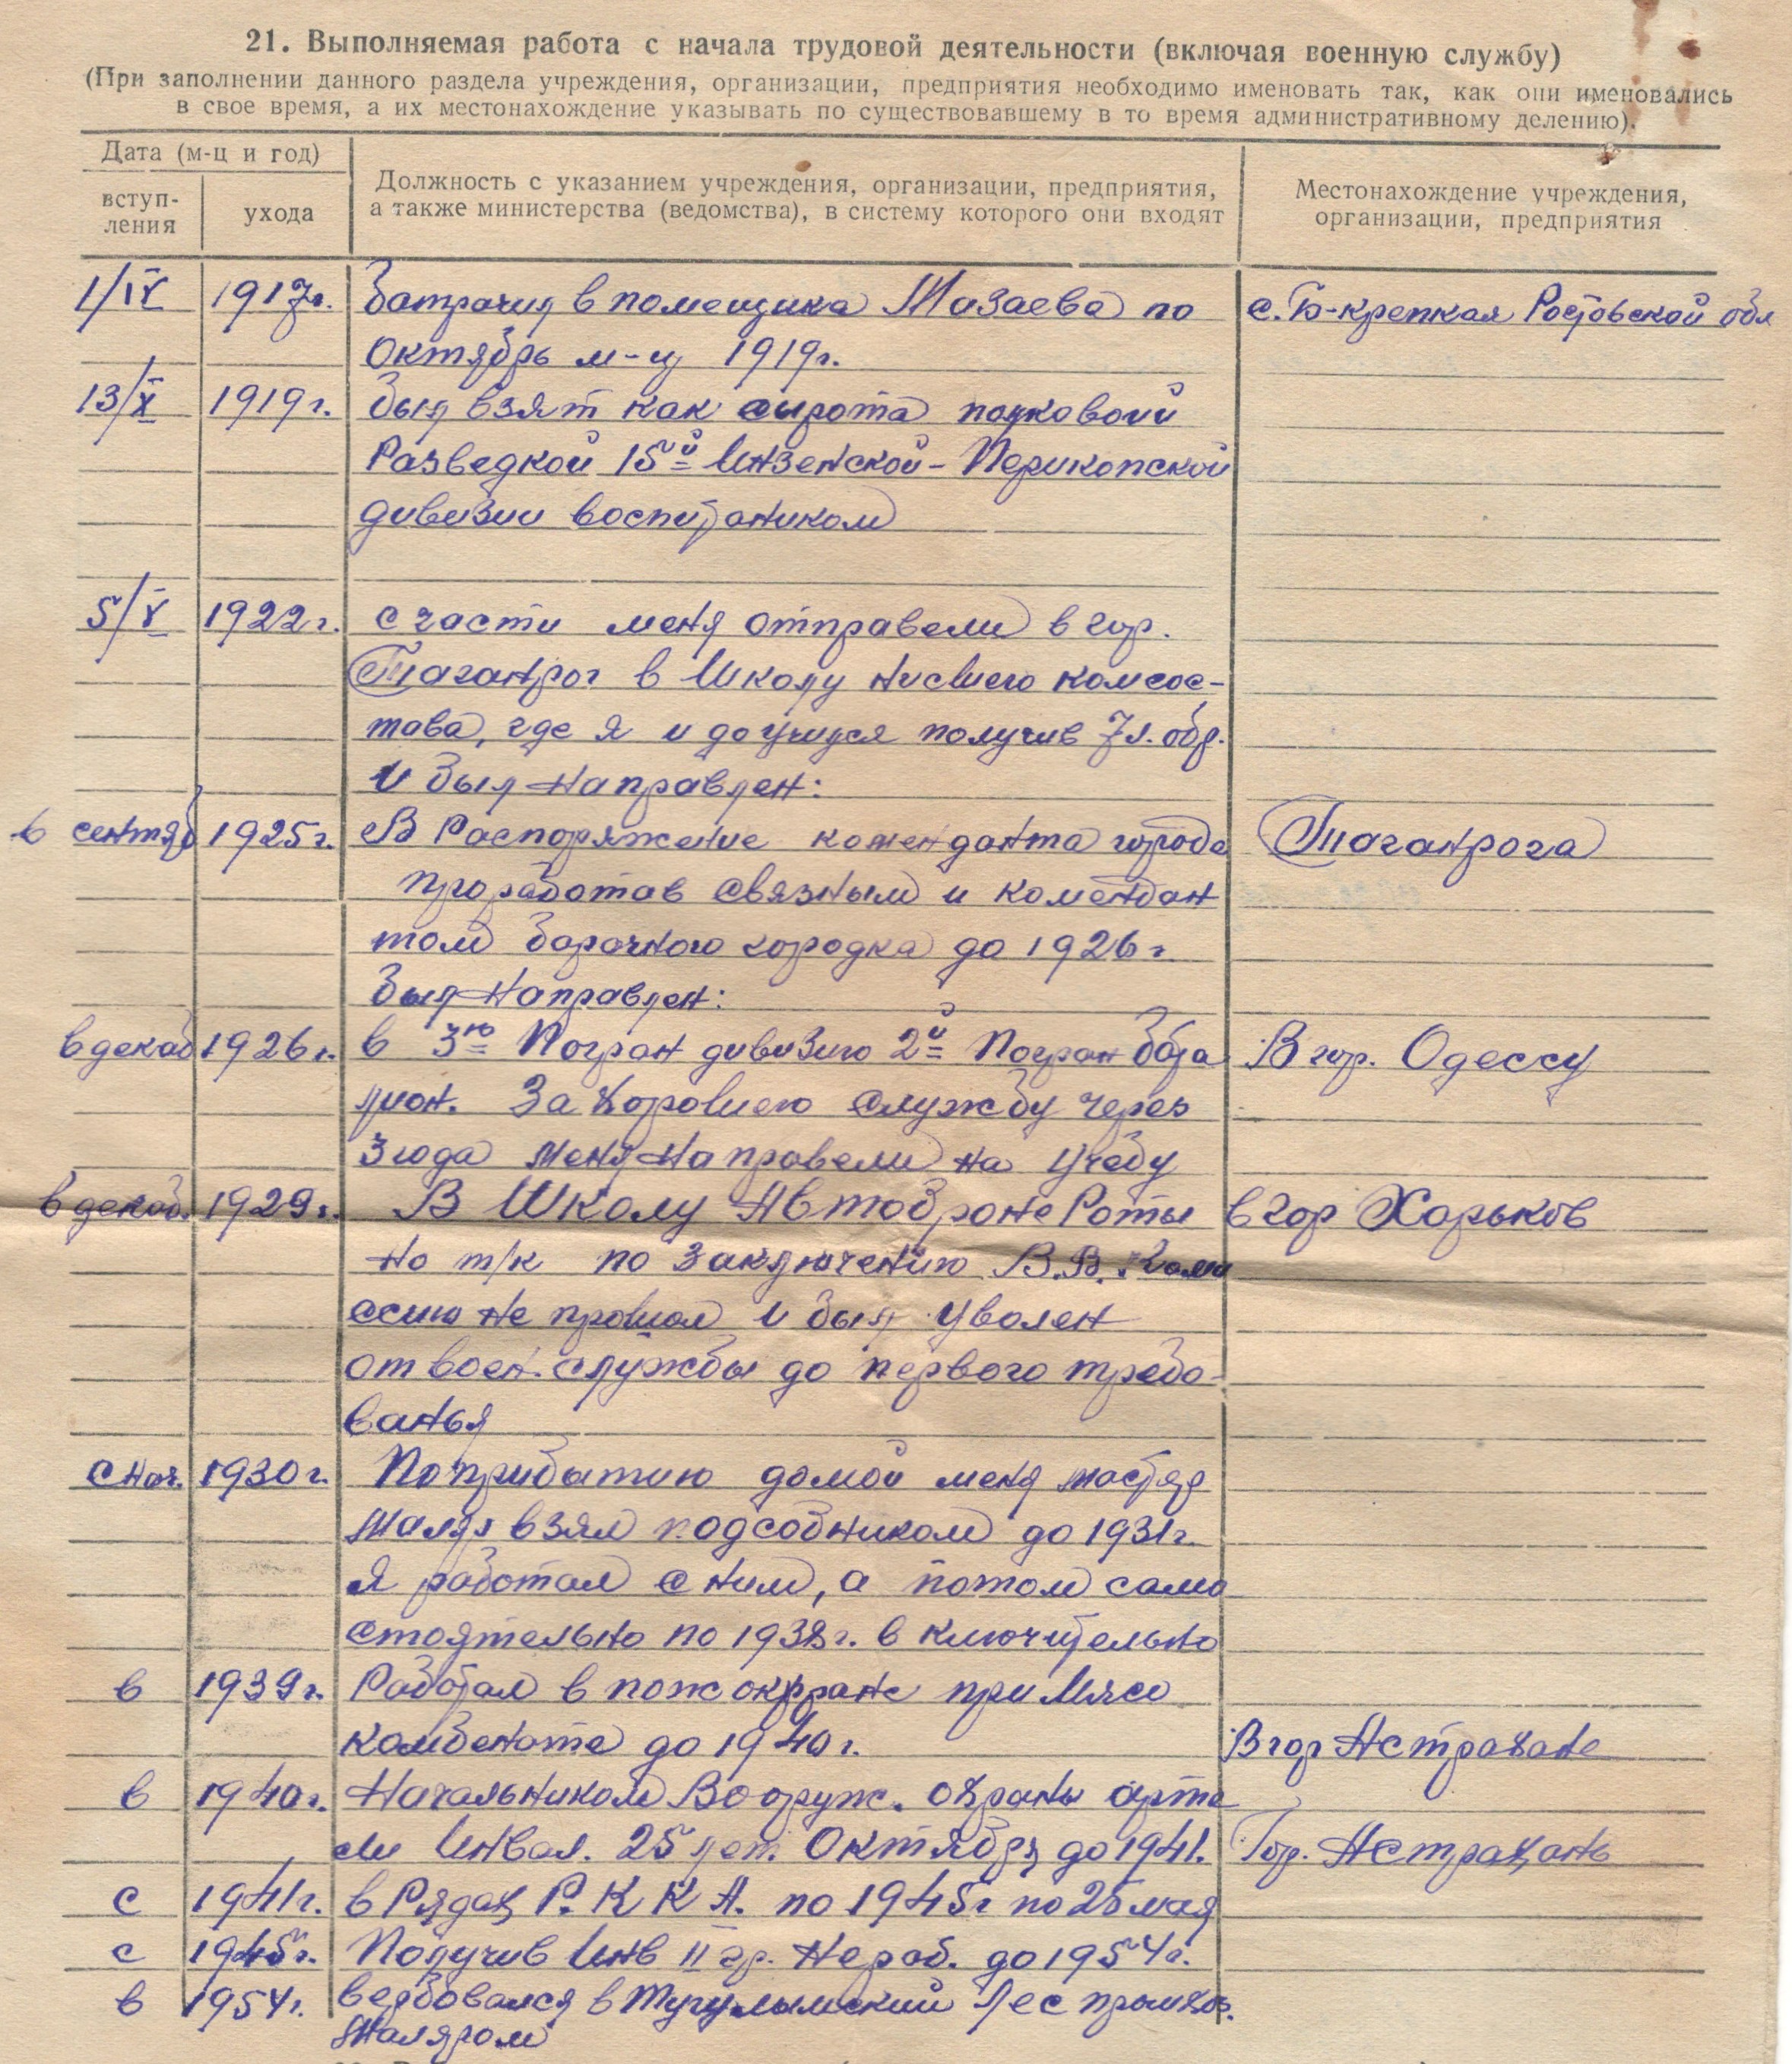 21. Выполняемая работа с начала трудовой деятельности (включая военную службу)
(При заполнении данного раздела учреждения, организации, предприятия необходимо именовать так, как они именовались
в свое время, а их местонахождение указывать по существовавшему в то время административному делению).
Дата (м-ц и год)
вступ-
ления
ухода
Должность с указанием учреждения, организации, предприятия,
а также министерства (ведомства), в систему которого они входят
Местонахождение учреждения,
организации, предприятия
1/IV 1917г. Батрачил в помещика Мазаева по с. Б-крепкая Ростовской обл
Октябрь м-ц 1919г.
13/X 1919г. был взят как сирота полковой
Разведкой 15й Инзенской-Перикопской
дивизии воспитаником
5/V 1922г. с части меня отправели в гор.
Таганрог в Школу нисшего комсос-
тава, где я и доучился получив 7л. обр.
и был направлен:
в сентяб 1925г. В Распоряжение коменданта города Таганрога
проработав связным и комендан
том барачного городка до 1926г
был направлен:
в декаб 1926г. в 3ю Погран дивизию 2й Погран бата В гор. Одессу
лион. За хорошею службу через
3 года меня направели на учебу
в декаб. 1929г. В Школу Автоброне Роты в гор Харьков
но т/к по заключению В.В. Коми
ссию не прошол и был уволен
от воен. службы до первого требо-
ванья
с нач. 1930г. По прибытию домой меня мастер
Маляр взял подсобником до 1931г.
я работал с ним, а потом само
стоятельно по 1938г. в ключительно
в 1939г. Работал в пож охране при Мясо
комбенате до 1940г. В гор Астрахане
в 1940г. Начальником Вооруж. охраны арте
ли Инвал. 25 лет Октября до 1941. Гор. Астрахань
с 1941г. в Рядах Р.К.К.А. по 1945г по 25 мая
с 1945г. Получив Инв II гр. Не раб. до 1954г.
в 1954г. вербовался в Тугулымский Леспромхоз.
Маляром